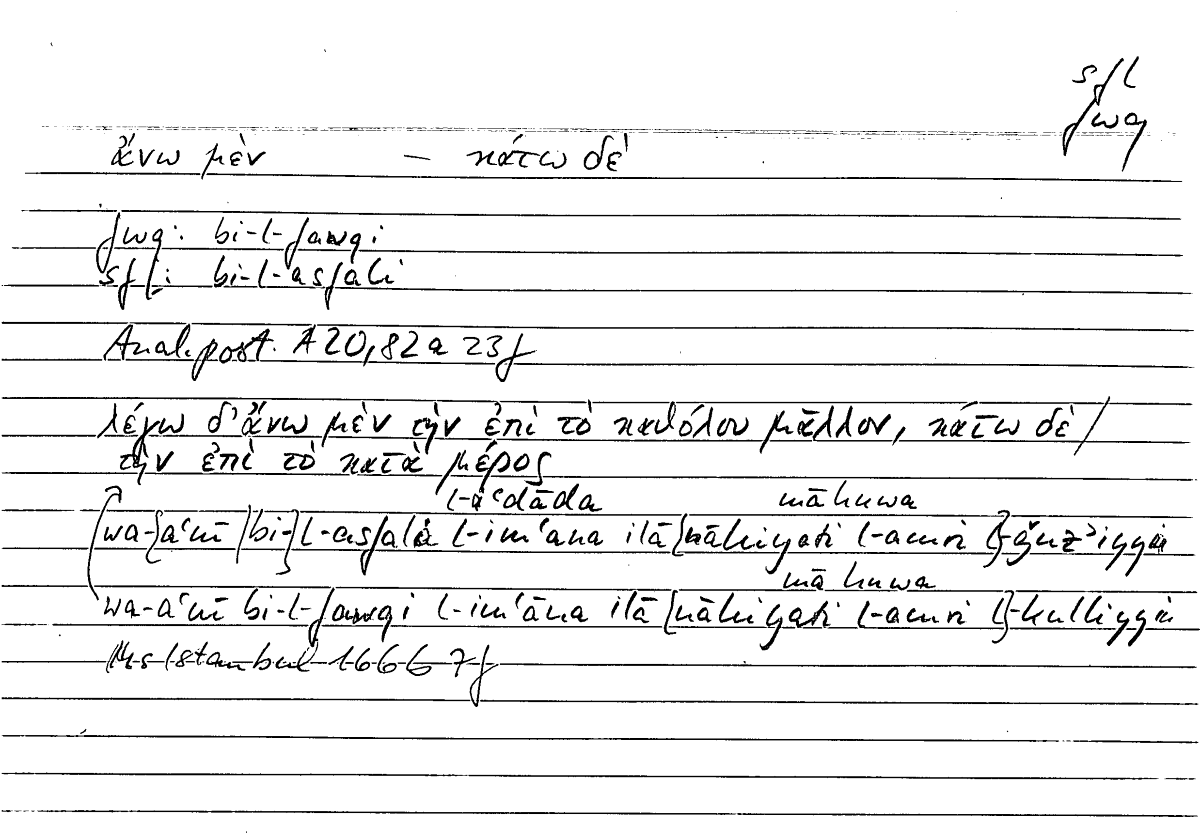 sfl
fwq
ἄνω μὲν — κάτω δὲ
fwq: bi-l-fawqi
sfl: bi-l-asfali
Anal. post. A 20, 82 a 23 f
λέγω δ' ἄνω μὲν τὴν ἐπὶ τὸ καθόλου μᾶλλον, κάτω δὲ /
τὴν ἐπὶ τὸ κατὰ μέρος
l-aʿdāda mā huwa
wa-{aʿnī /bi-}l-asfala l-imʿana ilā {nāhiyati l-amri l}-ǧuzʾiyyi
mā huwa
wa-aʿnī bi-l-fawqi l-imʿāna ilā {nāhiyati l-amri l}-kulliyyi
Ms Istanbul 166 67f